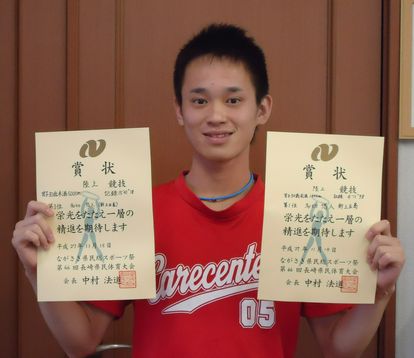 賞状
陸上 競技
栄光をたたえ一層の
精進を期待します
平成27年11月15日
ながさき県民総スポーツ祭
第66回長崎県民体育大会
会長 中村 法道
Carecenter
05
賞状
陸上 競技
栄光をたたえ一層の
精進を期待します
平成27年11月14日
ながさき県民総スポーツ祭
第66回長崎県民体育大会
会長 中村 法道